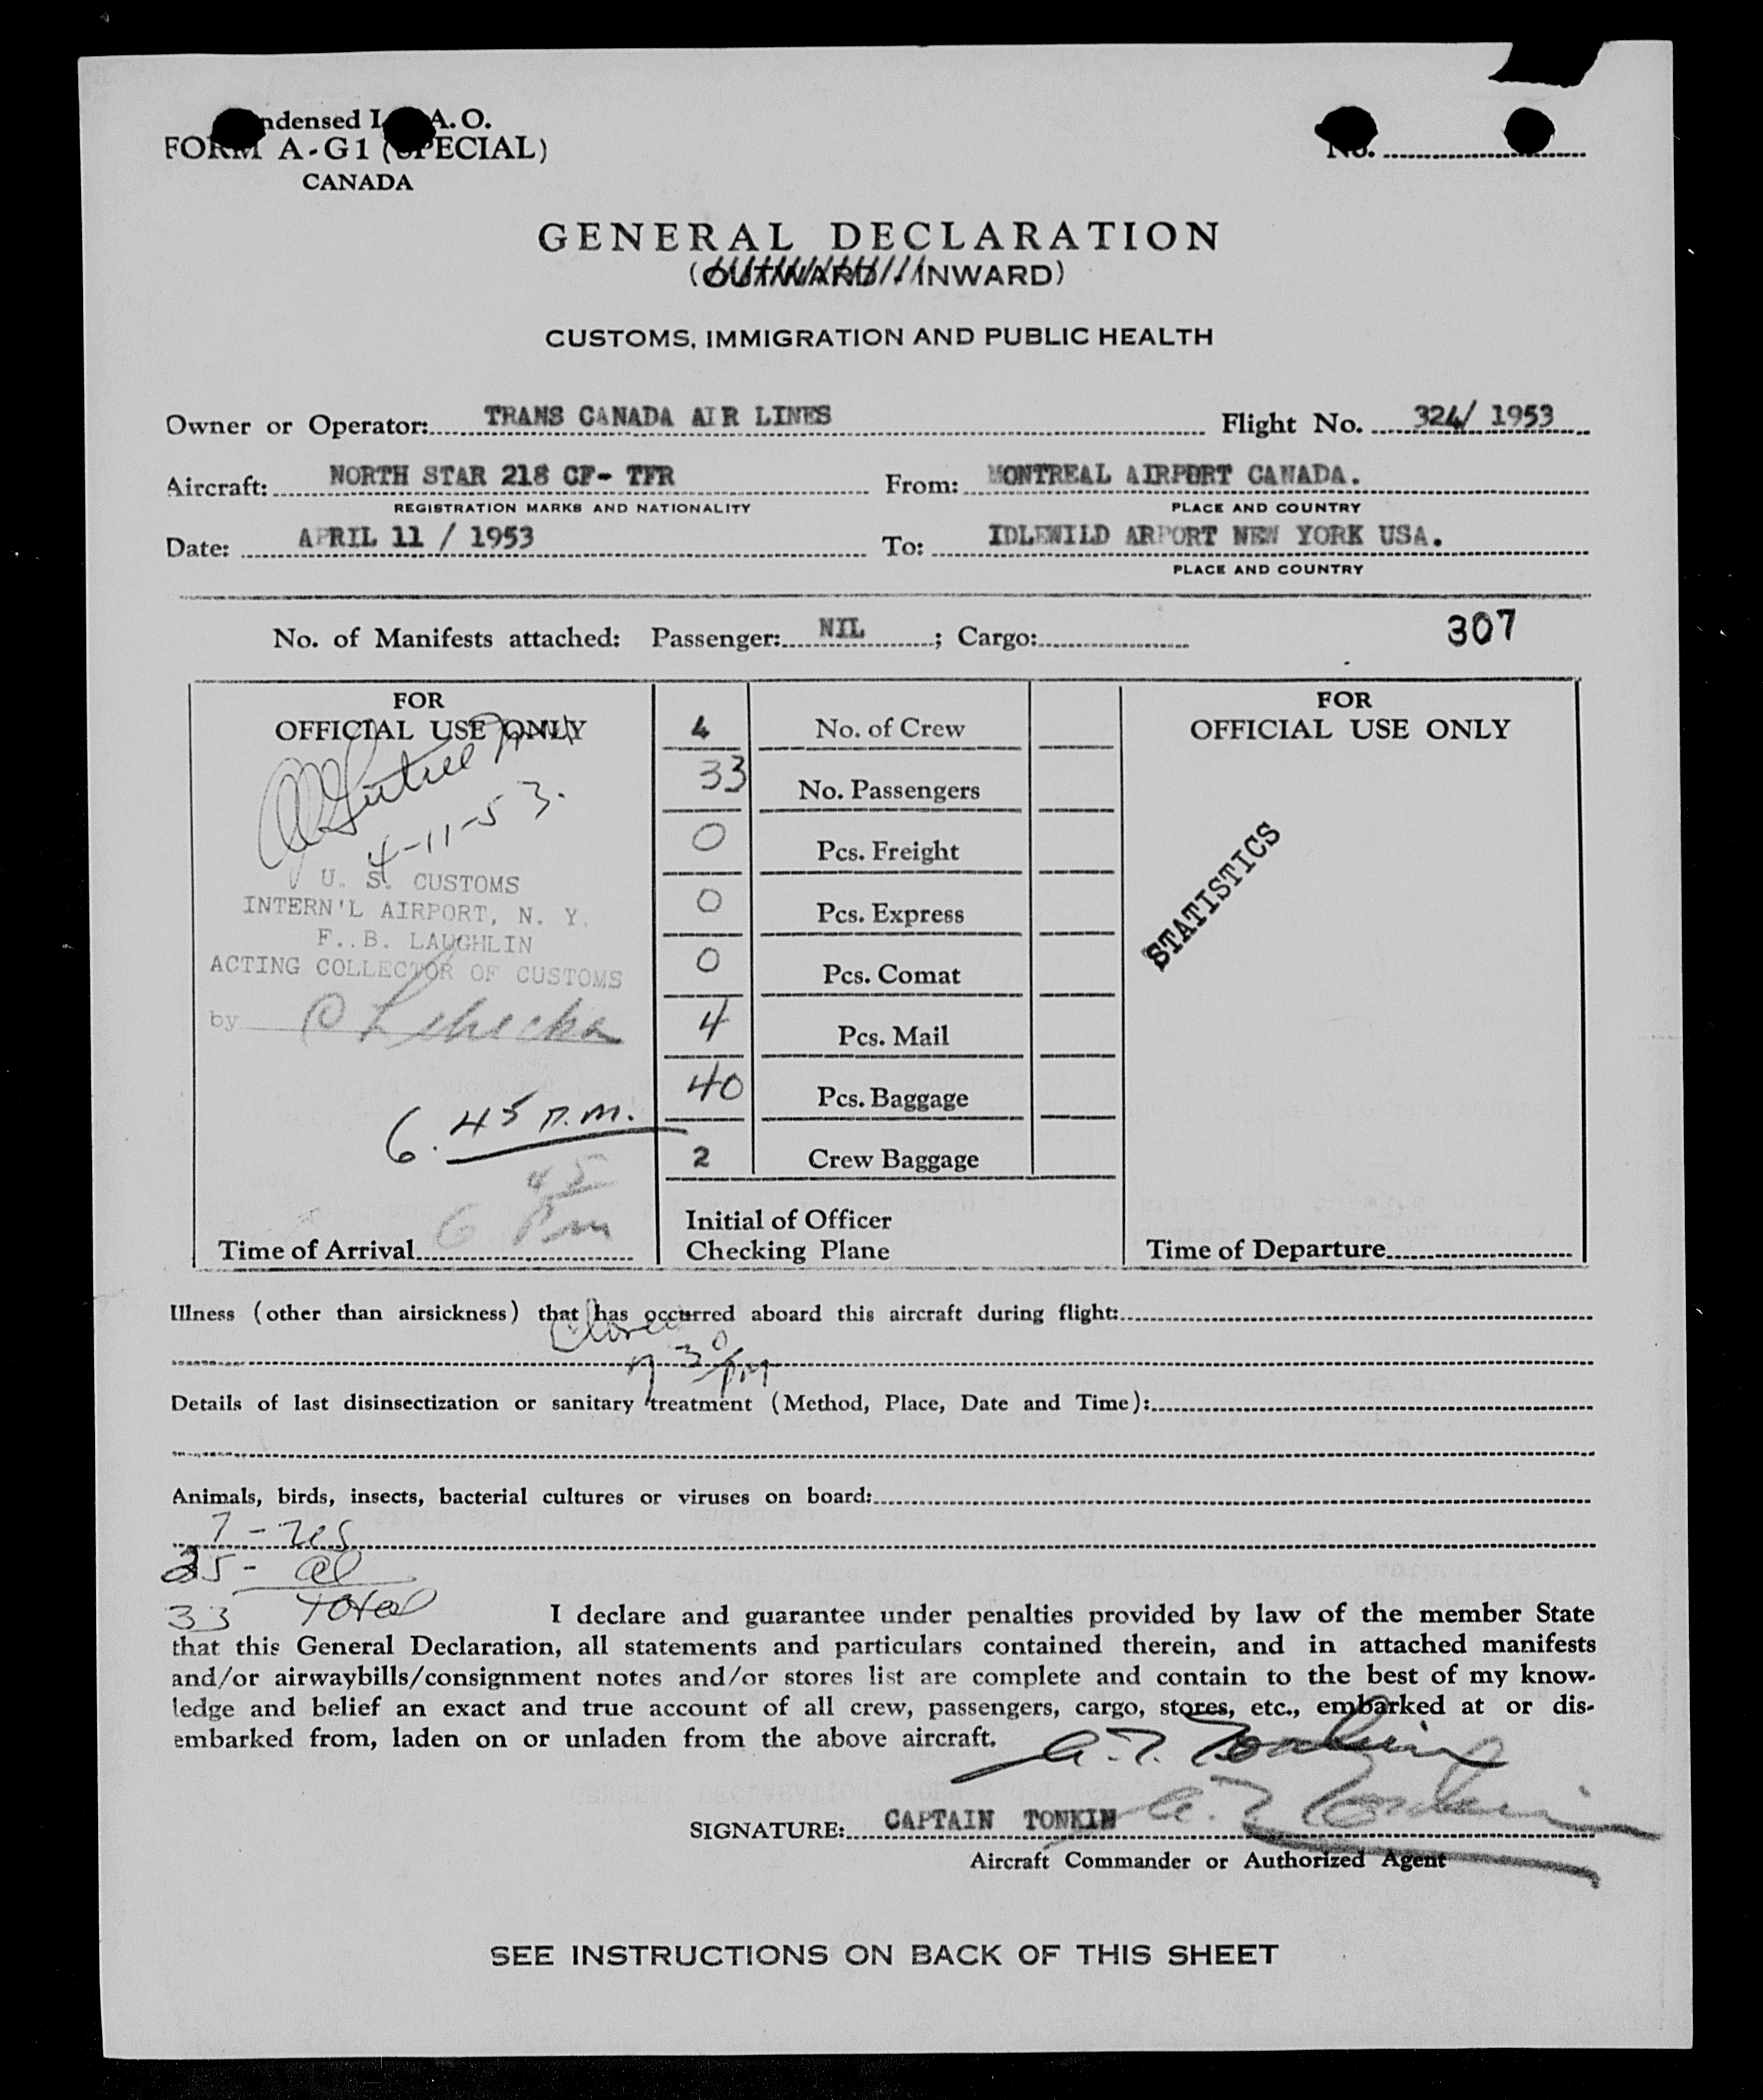 ndensed I A. O.
FORM A-G1 (SPECIAL)
CANADA
No.
GENERAL DECLARATION
(OUTWARD / INWARD)
CUSTOMS, IMMIGRATION AND PUBLIC HEALTH
Owner or Operator: TRANS CANADA AIR LINES Flight No. 324/ 1953
Aircraft: NORTH STAR 218 CF- TFR From: MONTREAL AIRPORT CANADA.
REGISTRATION MARKS AND NATIONALITY PLACE AND COUNTRY
Date: APRIL 11 / 1953 To: IDLEWILD ARPORT NEW YORK USA.
PLACE AND COUNTRY
No. of Manifests attached: Passenger: NIL ; Cargo: 307
FOR
OFFICIAL USE ONLY
4-11-53.
U. S. CUSTOMS
INTERN'L AIRPORT, N. Y.
F..B. LAUGHLIN
ACTING COLLECTOR OF CUSTOMS
by
6.45 P.M.
6 45 Pm
Time of Arrival
4 No. of Crew
33 No. Passengers
0 Pcs. Freight
0 Pcs. Express
0 Pcs. Comat
4 Pcs. Mail
40 Pcs. Baggage
2 Crew Baggage
Initial of Officer
Checking Plane
FOR
OFFICIAL USE ONLY
STATISTICS
Time of Departure
Illness (other than airsickness) that has occurred aboard this aircraft during flight:
7 30 PM
Details of last disinsectization or sanitary treatment (Method, Place, Date and Time):
Animals, birds, insects, bacterial cultures or viruses on board:
33 Total
I declare and guarantee under penalties provided by law of the member State
that this General Declaration, all statements and particulars contained therein, and in attached manifests
and/or airwaybills/consignment notes and/or stores list are complete and contain to the best of my know-
ledge and belief an exact and true account of all crew, passengers, cargo, stores, etc., embarked at or dis-
embarked from, laden on or unladen from the above aircraft.
A. T. Tonkin
SIGNATURE: CAPTAIN TONKIN A. T. Tonkin
Aircraft Commander or Authorized Agent
SEE INSTRUCTIONS ON BACK OF THIS SHEET